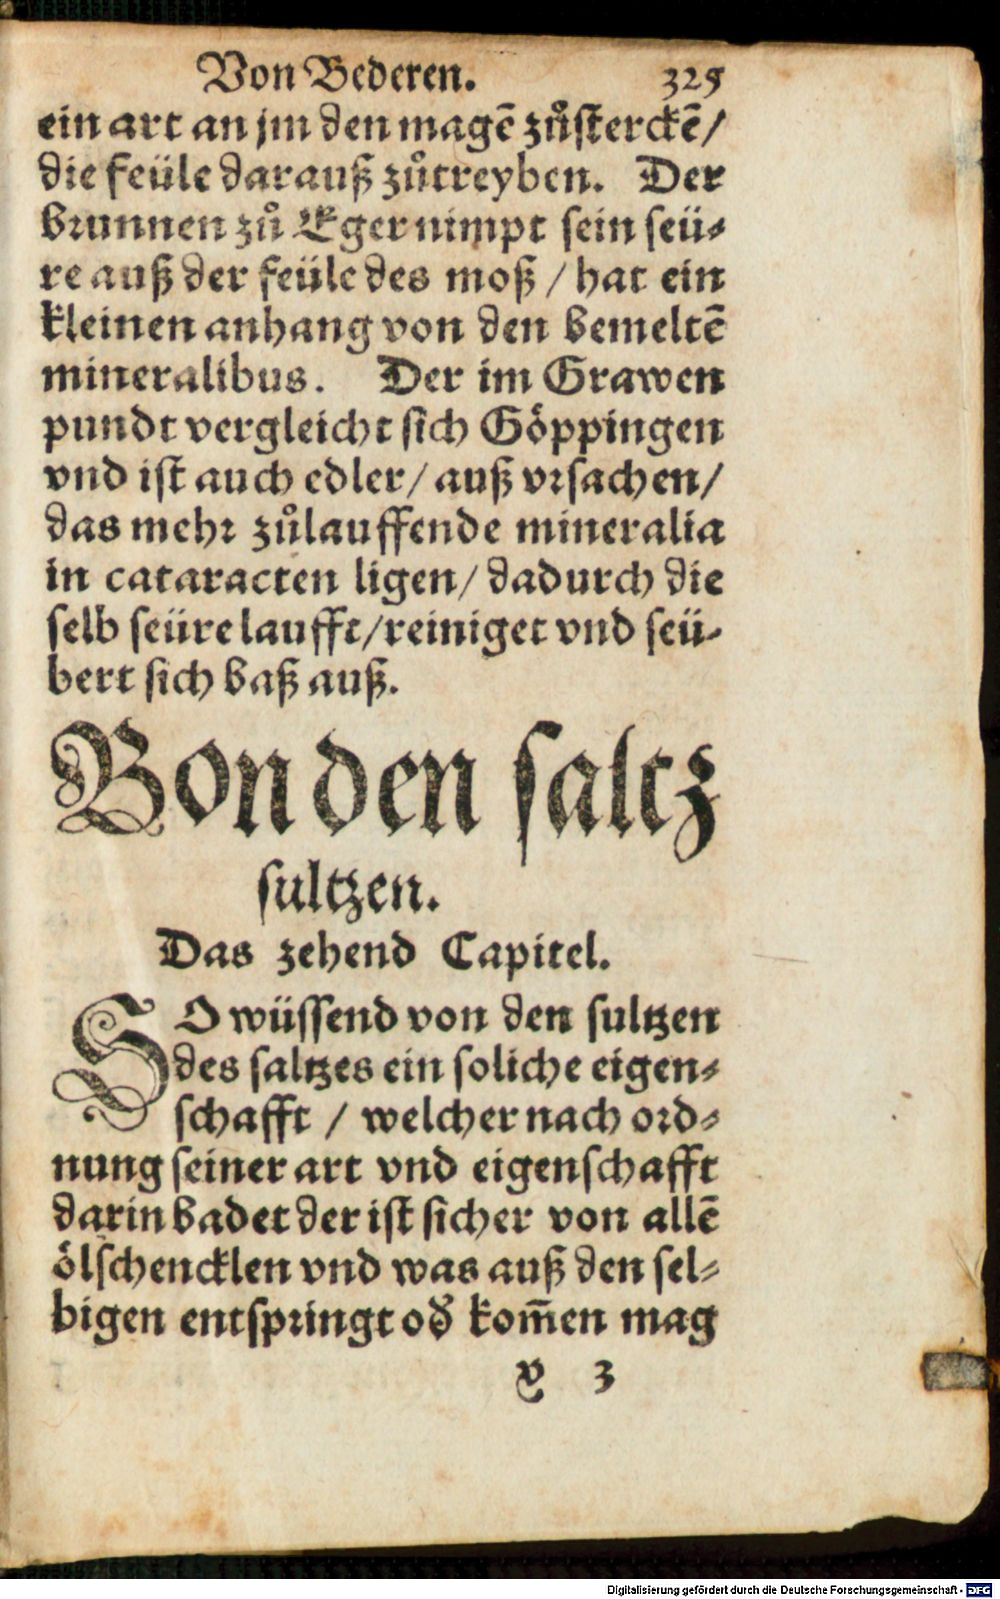 Von Bederen. 325
ein art an jm den magē zůsterckē/
die feüle darauß zůtreyben. Der
brunnen zů Eger nimpt sein seü-
re auß der feüle des moß / hat ein
kleinen anhang von den bemeltē
mineralibus. Der im Grawen
pundt vergleicht sich Göppingen
vnd ist auch edler/ auß vrsachen/
das mehr zůlauffende mineralia
in cataracten ligen/ dadurch die
selb seüre laufft/reiniget vnd seü-
bert sich baß auß.
Von den saltz
sultzen.
Das zehend Capitel.
SO wüssend von den sultzen
des saltzes ein soliche eigen-
schafft / welcher nach ord-
nung seiner art vnd eigenschafft
darin badet der ist sicher von allē
ölschencklen vnd was auß den sel-
bigen entspringt od̕ kom̄en mag
v 3
Digitalisierung gefördert durch die Deutsche Forschungsgemeinschaft - DFG